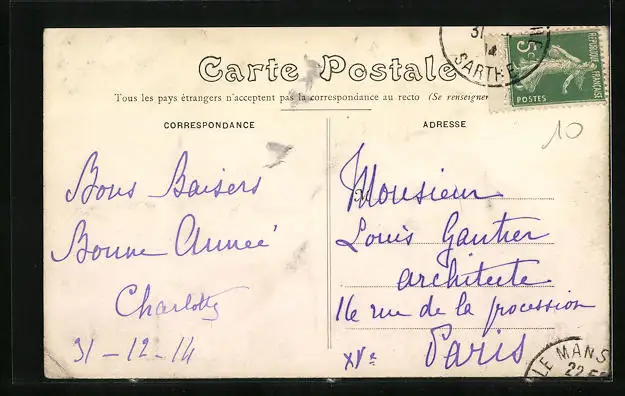 Carte Postale
Tous les pays étrangers n'acceptent pas la correspondance au recto (Se renseigner
CORRESPONDANCE
Bons Baisers
Bonne Année
Charlotte
31-12-14
ADRESSE
Monsieur
Louis Gautier
architecte
16 rue de la procession
XVe Paris
31
14
SARTHE
REPUBLIQUE FRANÇAISE
5c
POSTES
10
LE MANS
22